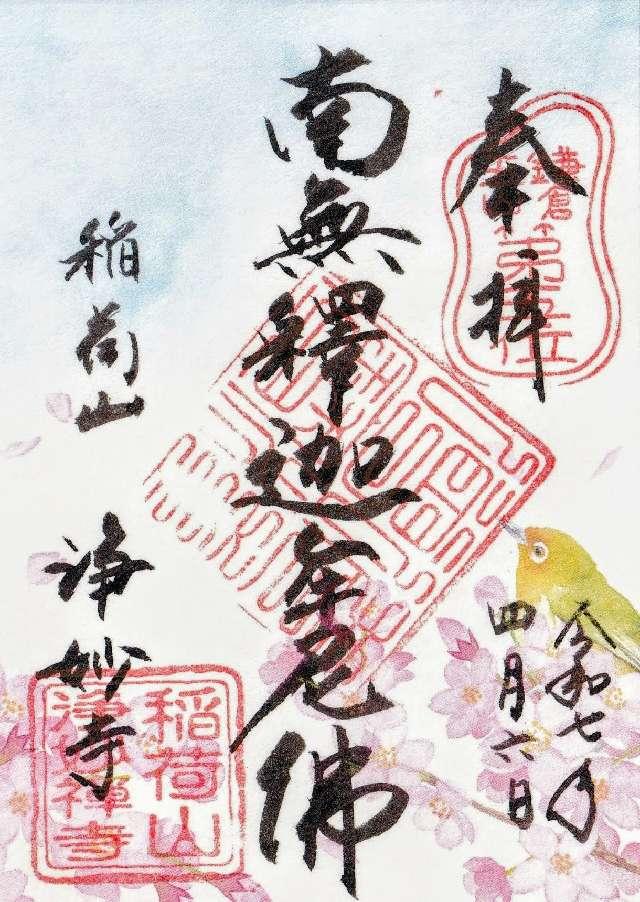 奉拝
鎌倉
第五
令和七年
四月六日
南無釋迦牟尼佛
稲荷山
浄妙寺
稲荷山
浄妙禅寺